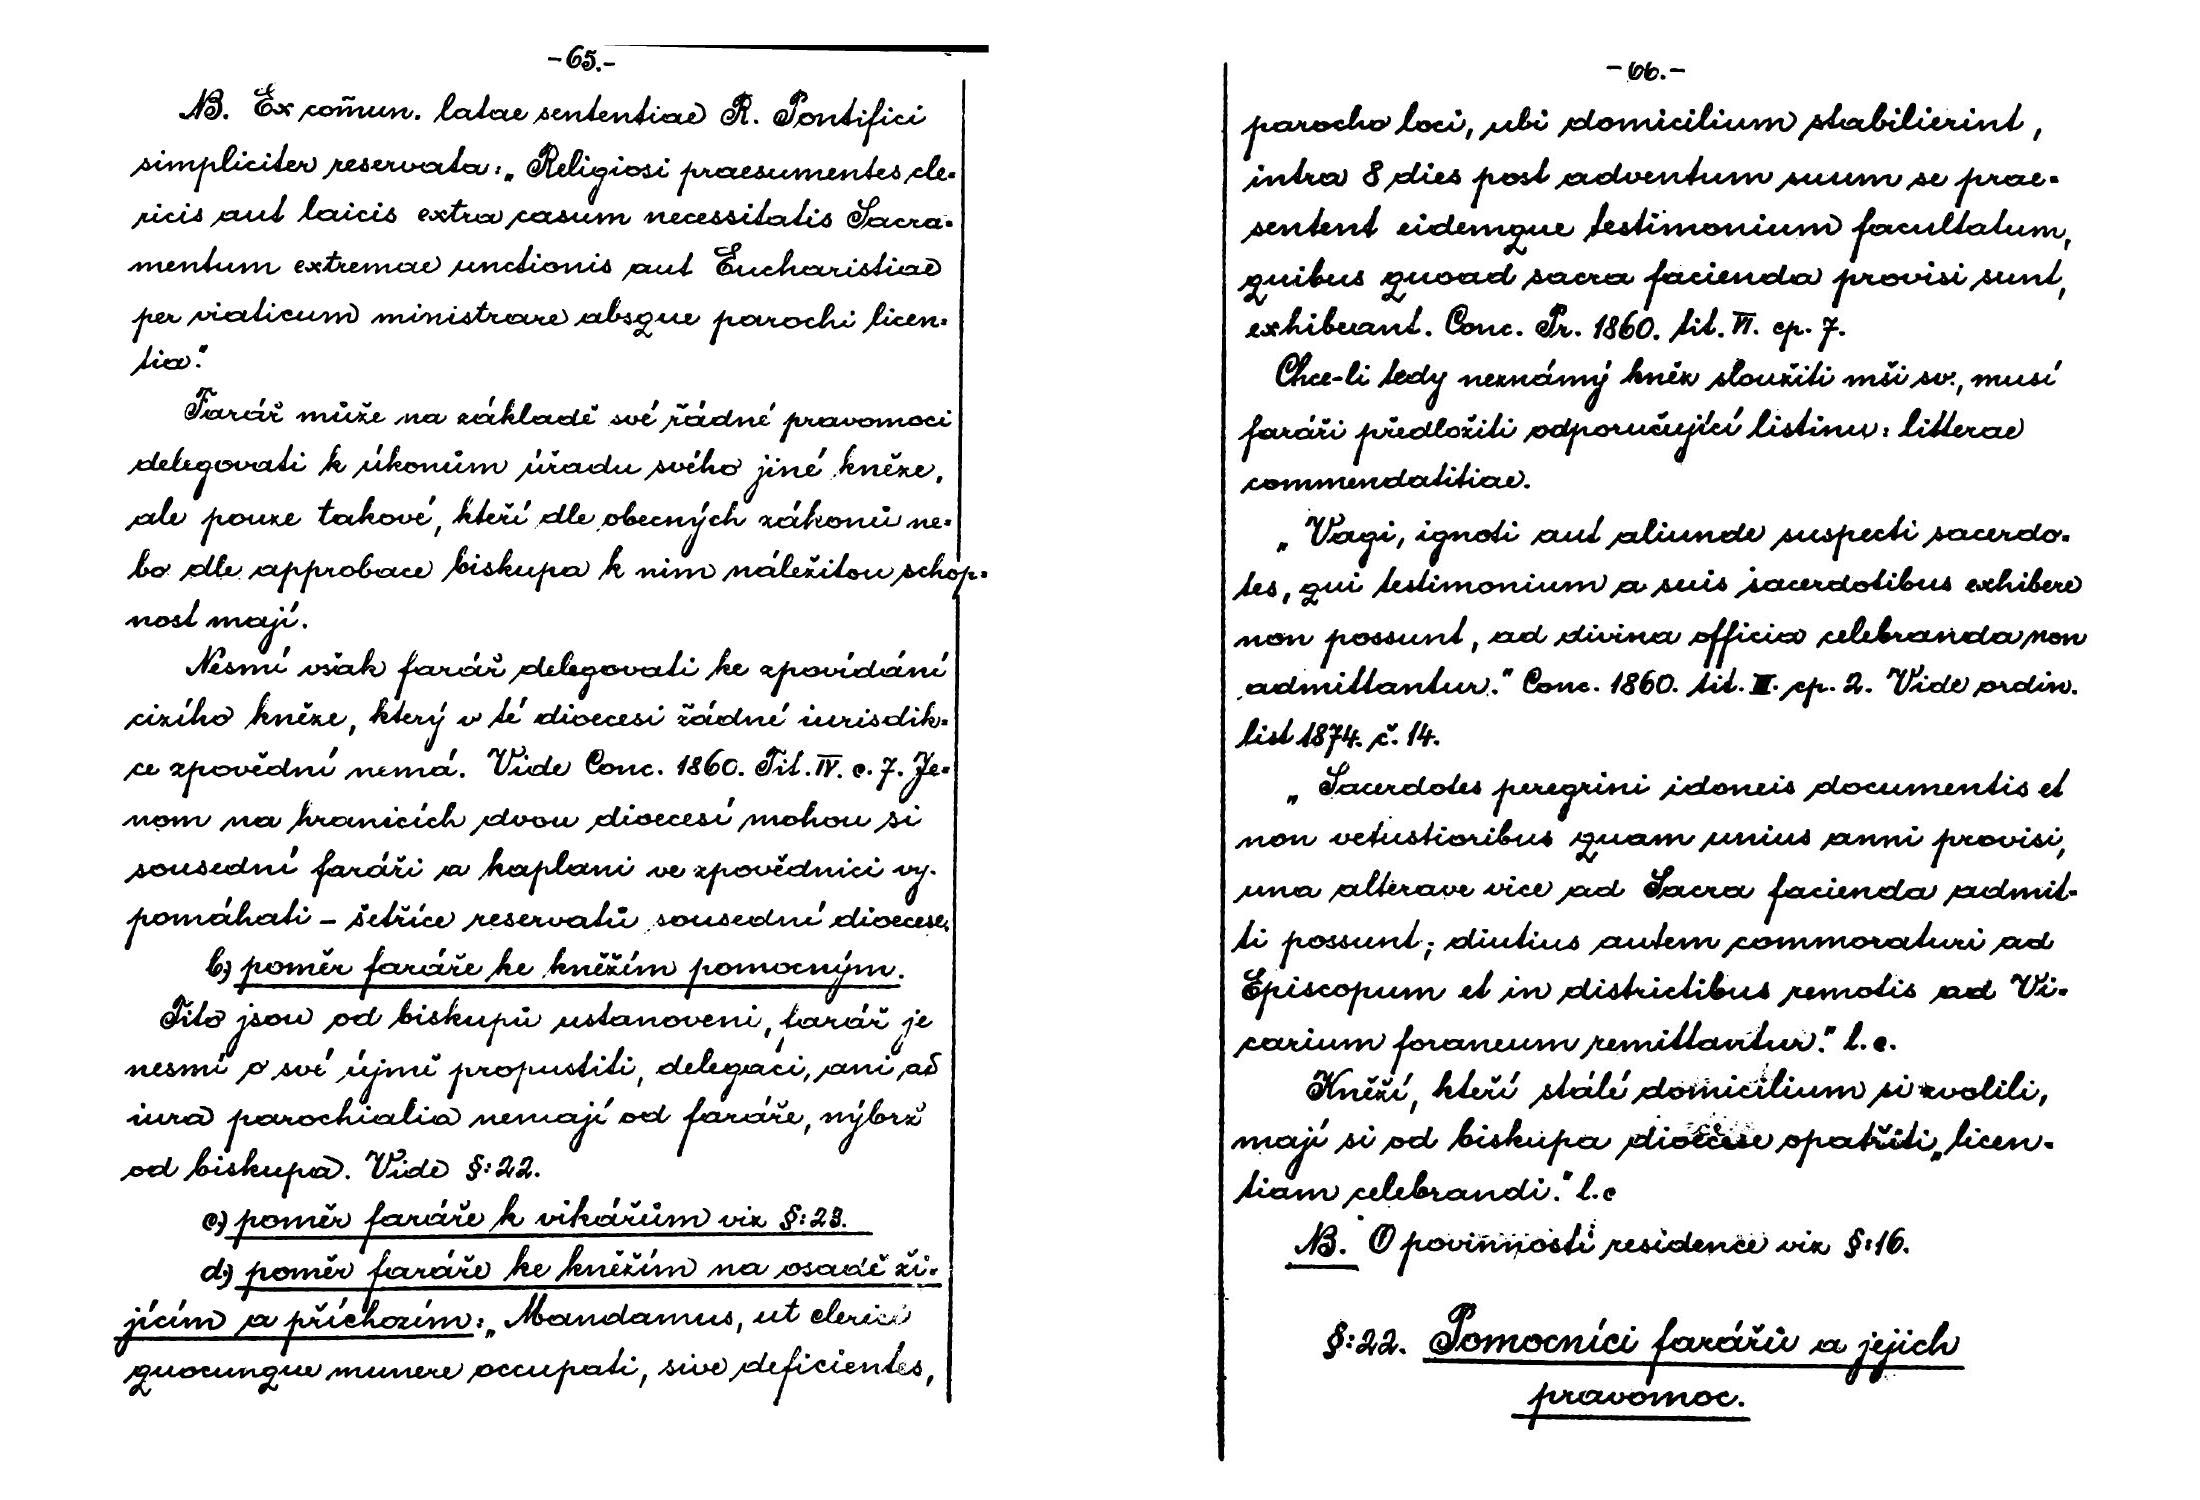 -65.-
NB. Excom̃un. latae sententiae R. Pontifici
simpliciter reservata: „Religiosi praesumentes cle-
ricis aut laicis extra casum necessitatis Sacra-
mentum extremae unctionis aut Eucharistiae
per viaticum ministrare absque parochi licen-
tia.“
Farář může na základě své řádné pravomoci
delegovati k úkonům úřadu svého jiné kněze,
ale pouze takové, kteří dle obecných zákonů ne-
bo dle approbace biskupa k nim náležitou schop-
nost mají.
Nesmí však farář delegovati ke zpovídání
cizího kněze, který v té dioecesi žádné iurisdik-
ce zpovědní nemá. Vide Conc. 1860. Tit. IV. c. 7. Je-
nom na hranicích dvou dioecesí mohou si
sousední faráři a kaplani ve zpovědnici vy-
pomáhati – šetříce reservatů sousední dioecese.
b) poměr faráře ke kněžím pomocným.
Tito jsou od biskupů ustanoveni, farář je
nesmí o své újmě propustiti, delegaci, ani ad
iura parochialia nemají od faráře, nýbrž
od biskupa. Vide §: 22.
c) poměr faráře k vikářům viz §: 23.
d) poměr faráře ke kněžím na osadě ži-
jícím a příchozím: „Mandamus, ut clerici
quocunque munere occupati, sive deficientes,
-66.-
parocho loci, ubi domicilium stabilierint,
intra 8 dies post adventum suum se prae-
sentent eidemque testimonium facultatum,
quibus quoad sacra facienda provisi sunt,
exhibeant. Conc. Pr. 1860. tit. VI. cp. 7.
Chce-li tedy neznámý kněz sloužiti mši sv., musí
faráři předložiti odporučující listinu: litterae
commendatitiae.
„Vagi, ignoti aut aliunde suspecti sacerdo-
tes, qui testimonium a suis sacerdotibus exhibere
non possunt, ad divina officia celebranda non
admittantur.“ Conc. 1860. tit. II. cp. 2. Vide ordin.
list 1874. č. 14.
„Sacerdotes peregrini idoneis documentis et
non vetustioribus quam unius anni provisi,
una alterave vice ad Sacra facienda admit-
ti possunt; diutius autem commoraturi ad
Episcopum et in districtibus remotis ad Vi-
carium foraneum remittantur.“ l. c.
Kněží, kteří stálé domicilium si zvolili,
mají si od biskupa dioecese opatřiti „licen-
tiam celebrandi.“ l. c
NB. O povinnosti residence viz §: 16.
§: 22. Pomocníci farářů a jejich
pravomoc.